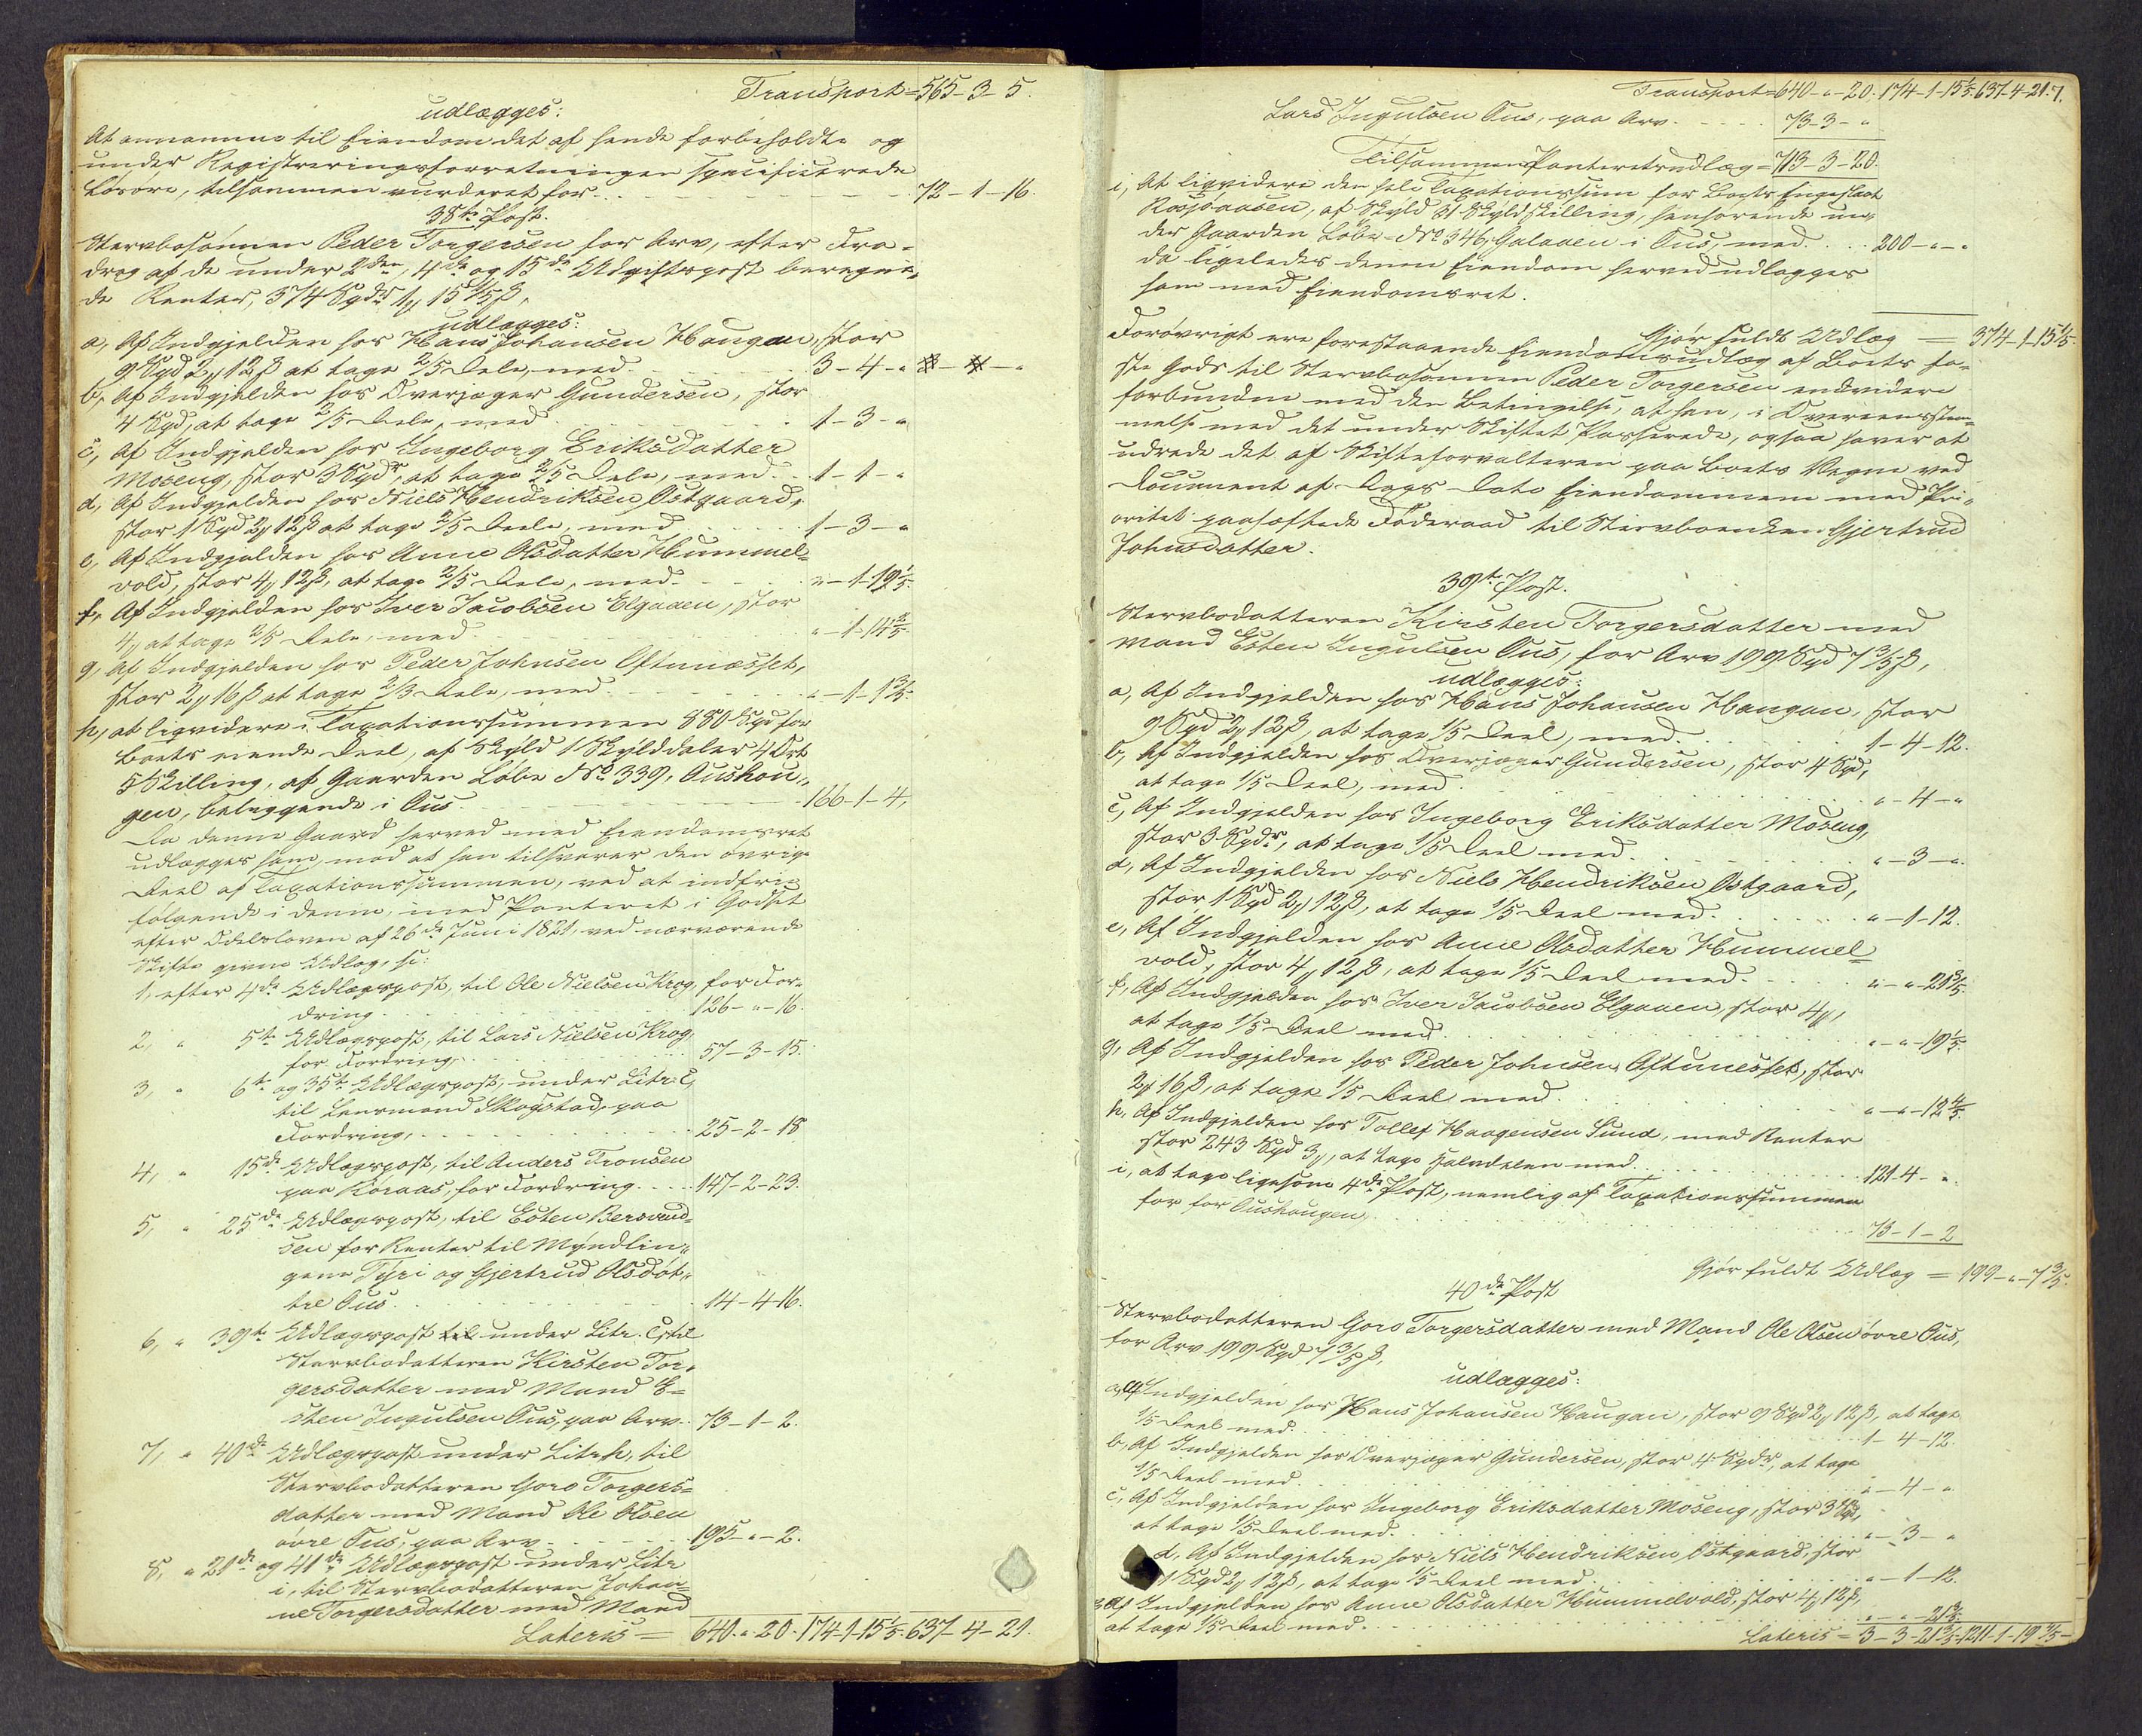 Transport = 565-3-5.
udlægges:
At annamme til Eiendom det af hende forbeholdte og
under Registreringsforretningen specificerede
Løsøre, tilsammen vurderet for 72-1-16.
38te Post.
Stervbosønnen Peder Torgersen for Arv, efter Fra-
drag af de under 2den, 4de og 15de Udgiftspost beregne-
de Renter, 374 Spdr 1 ort 15 1/5 ß,
udlægges:
a, Af Indgjelden hos Hans Johansen Haugan, stor
9 Spd 2 ort 12 ß at tage 2/5 Dele, med 3-4-"
b, Af Indgjelden hos Overjæger Gundersen, stor
4 Spd, at tage 2/5 Dele, med 1-3-"
c, Af Indgjelden hos Ingeborg Eriksdatter
Moseng, stor 3 Spdr, at tage 2/5 Dele, med 1-1-"
d, Af Indgjelden hos Niels Hendriksen Østgaard,
stor 1 Spd 2 ort 12 ß at tage 2/5 Dele, med 1-3-"
e, Af Indgjelden hos Anne Olsdatter Hummel-
vold, stor 4 ort 12 ß, at tage 2/5 Dele, med "-1-19 1/5.
f, Af Indgjelden hos Iver Jacobsen Elgaaen, stor
4 ort at tage 2/5 Dele, med "-1-14 2/5.
g, Af Indgjelden hos Peder Johnsen Oftuneset,
stor 2 ort 16 ß at tage 2/5 Dele, med "-1-1 3/5.
h, at liqvidere i Taxationssummen 880 Spd for
Boets eiende Deel, af Skyld 1 Skylddaler 4 Ort
5 Skilling, af Gaarden Løbe No 339, Oushou-
gen, beliggende i Ous 166-1-4,
Da denne Gaard herved med Eiendomsret
udlægges ham, mod at han tilsvarer den øvrige
Deel af Taxationssummen, ved at indfrie
følgende i denne, med Panteret i Godset
efter Odelsloven af 26de Juni 1821, ved nærværende
Skifte givne Udlæg, se:
1, efter 4de Udlægspost, til Ole Nielsen Krog, for For-
dring 126-"-16.
2, " 5te Udlægspost, til Lars Nielsen Krog,
for Fordring, 57-3-15.
3, " 6te og 35te Udlægspost, under Litr. c,
til Lensmand Skogstad, paa
Fordring, 25-2-18
4, " 15de Udlægspost, til Anders Tronsen
paa Røraas, for Fordring 147-2-23.
5, " 25de Udlægspost, til Esten Bersvend-
sen for Renter til Myndlin-
gene Tyri og Gjertrud Olsdøt-
tre Ous. 14-4-16.
6, " 39te Udlægspost til under Litr. i, til
Stervbodatteren Kirsten Tor-
gersdatter med Mand E-
sten Ingulsen Ous, paa Arv. 73-1-2.
7, " 40de Udlægspost under Litr. h, til
Stervbodatteren Goro Torgers-
datter med Mand Ole Olsen
øvre Ous, paa Arv 195-"-2.
8, " 21de og 41de Udlægspost under Litr
i, til Stervbodatteren Johan-
ne Torgersdatter med Mand
Lateris = 640-"-20. 174-1-15 1/5. 637-4-21.
Transport = 640-"-20. 174-1-15 1/5. 637-4-21. 7.
Lars Ingulsen Ous, paa Arv 73-3-"
Tilsammen Panteretsudlæg = 713-3-20.
i, At liqvidere den hele Taxationssum for Boets Engeslaat
, af Skyld 21 Skyldskilling, henhørende un-
der Gaarden Løbe-No 346, Galaaen i Ous, med 200-"-"
da ligeledes denne Eiendom herved udlægges
ham med Eiendomsret.
Gjør fuldt Udlæg = 374-1-15 1/5.
Forøvrigt ere forestaaende Eiendomsudlæg af Boets fa-
ste Gods til Stervbosønnen Peder Torgersen endvidere
forbundne med den Betingelse, at han, i Overeensstem-
melse med det under Skiftet Passerede, ogsaa haver at
udrede det af Skifteforvalteren paa Boets Vegne ved
Document af Dags Dato Eiendommene med Pri-
oritet paahæftede Føderaad til Stervboenken Gjertrud
Johnsdatter.
39te Post.
Stervbodatteren Kirsten Torgersdatter med
Mand Esten Ingulsen Ous, for Arv 199 Spd 7 3/5 ß,
udlægges:
a, Af Indgjelden hos Hans Johansen Haugan, stor
9 Spd 2 ort 12 ß, at tage 1/5 Deel, med 1-4-12.
b, Af Indgjelden hos Overjæger Gundersen, stor 4 Spd,
at tage 1/5 Deel, med "-4-"
c, Af Indgjelden hos Ingeborg Eriksdatter Moseng,
stor 3 Spdr, at tage 1/5 Deel med "-3-"
d, Af Indgjelden hos Niels Hendriksen Østgaard,
stor 1 Spd 2 ort 12 ß, at tage 1/5 Deel med "-1-12.
e, Af Indgjelden hos Anne Olsdatter Hummel-
vold, stor 4 ort 12 ß, at tage 1/5 Deel med "-"-21 3/5.
f, Af Indgjelden hos Iver Jacobsen Elgaaen, stor 4 ort,
at tage 1/5 Deel med "-"-19 1/5.
g, Af Indgjelden hos Peder Johnsen Oftuneset, stor
2 ort 16 ß, at tage 1/5 Deel med "-"-12 4/5.
h, Af Indgjelden hos Tollef Haagensen Sund, med Renter
stor 243 Spd 3 ort, at tage Halvdelen med 121-4-"
i, at tage ligesom 4de Post, nemlig af Taxationssummen
for Oushougen, 73-1-2
Gjør fuldt Udlæg = 199-"-7 3/5.
40de Post
Stervbodatteren Goro Torgersdatter med Mand Ole Olsen øvre Ous,
for Arv 199 Spd 7 3/5 ß,
udlægges:
a, Af Indgjelden hos Hans Johansen Haugan, stor 9 Spd 2 ort 12 ß, at tage
1/5 Deel med 1-4-12.
b, Af Indgjelden hos Overjæger Gundersen, stor 4 Spdr, at tage
1/5 Deel med "-4-"
c, Af Indgjelden hos Ingeborg Eriksdatter Moseng, stor 3 Spd,
at tage 1/5 Deel med "-3-"
d, Af Indgjelden hos Niels Hendriksen Østgaard, stor
1 Spd 2 ort 12 ß, at tage 1/5 Deel med "-1-12.
e, Af Indgjelden hos Anne Olsdatter Hummelvold, stor 4 ort 12 ß,
at tage 1/5 Deel med "-"-21 3/5.
Lateris = 3-3-21 3/5. 1211-1-19 4/5